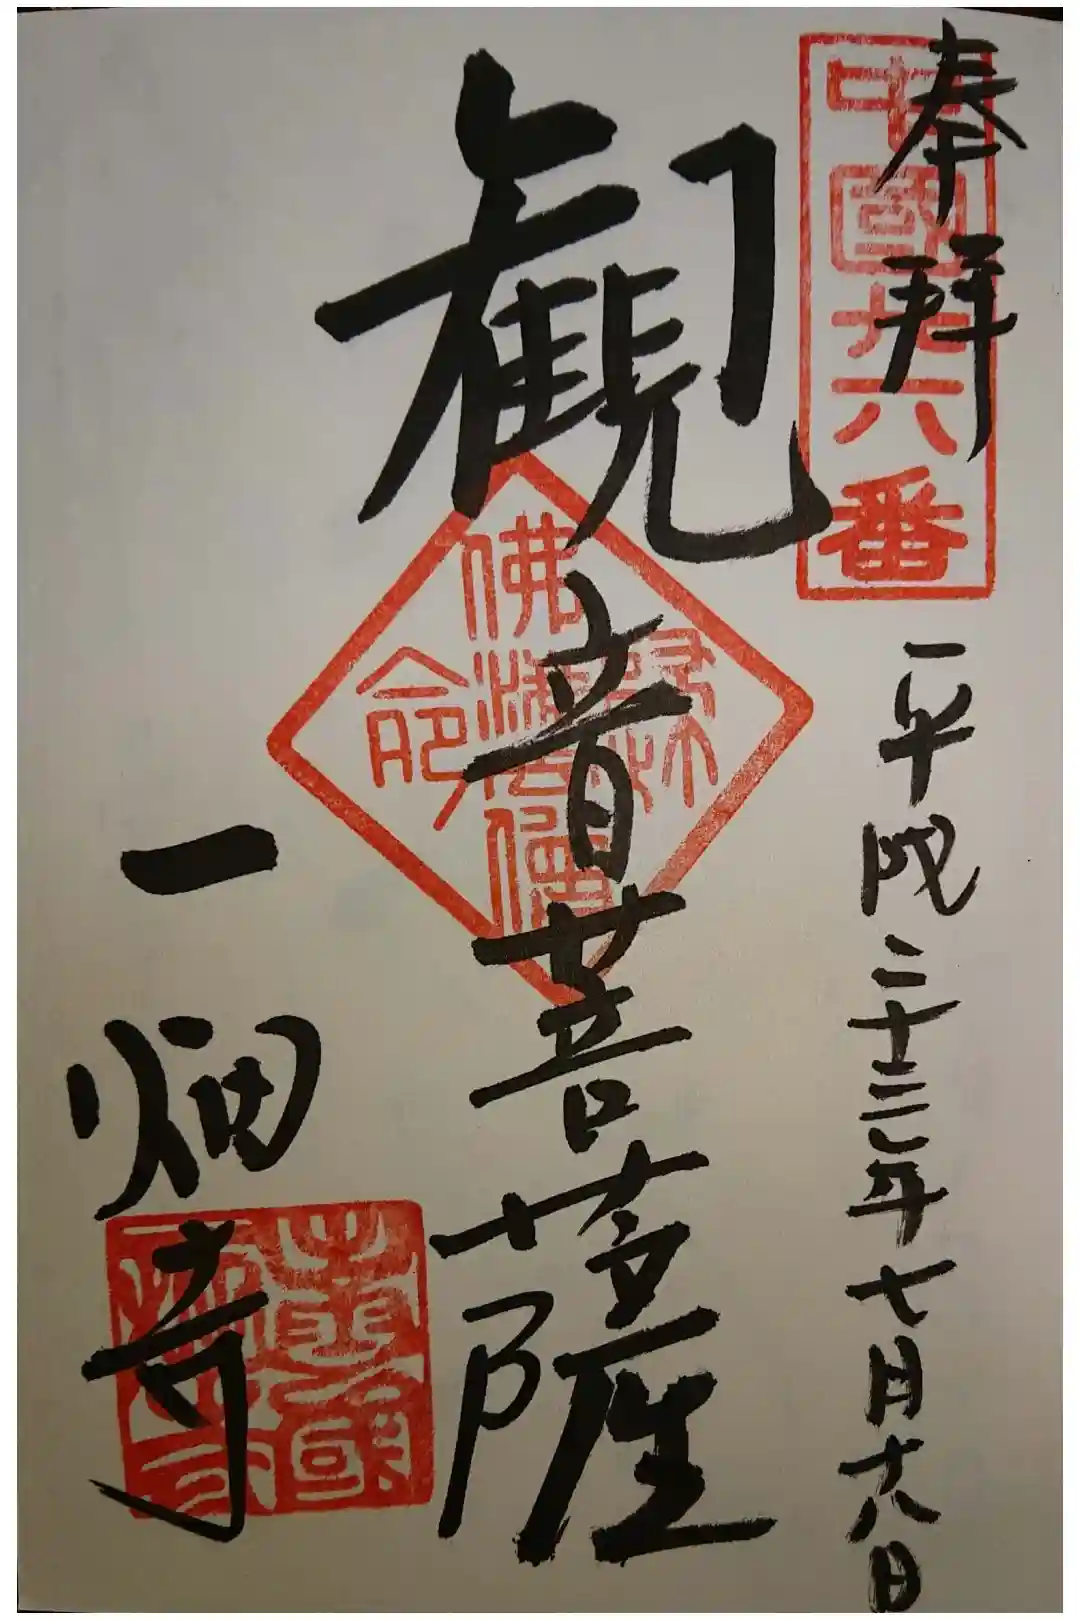 奉拝
中國廿六番
平成二十三年七月十八日
観音菩薩
佛法僧
一畑寺